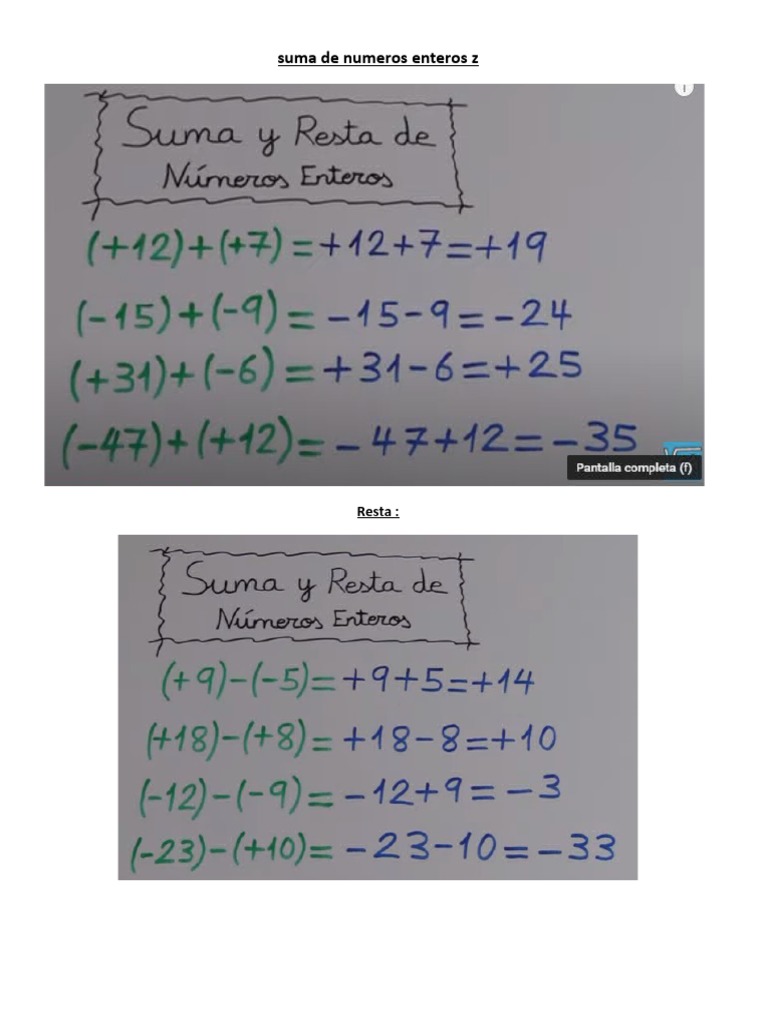 suma de numeros enteros z
Suma y Resta de
Números Enteros
(+12)+(+7)=+12+7=+19
(-15)+(-9)=-15-9=-24
(+31)+(-6)=+31-6=+25
(-47)+(+12)=-47+12=-35
Pantalla completa (f)
Resta :
Suma y Resta de
Números Enteros
(+9)-(-5)=+9+5=+14
(+18)-(+8)=+18-8=+10
(-12)-(-9)=-12+9=-3
(-23)-(+10)=-23-10=-33